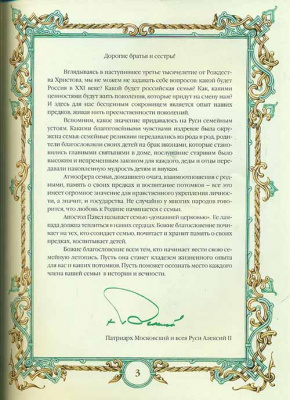 Дорогие братья и сестры!
Вглядываясь в наступившее третье тысячелетие от Рождест-
ва Христова, мы не можем не задавать себе вопросов: какой будет
Россия в XXI веке? Какой будет российская семья? Как, какими
ценностями будут жить поколения, которые придут на смену нам?
И здесь для нас бесценным сокровищем является опыт наших
предков, живая нить преемственности поколений.
Вспомним, какое значение придавалось на Руси семейным
устоям. Какими благоговейными чувствами издревле была окру-
жена семья: семейные реликвии передавались из рода в род, родите-
ли благословляли своих детей на брак иконами, которые стано-
вились главными святынями в доме, послушание старшим было
высоким и непременным законом для каждого, деды и отцы пере-
давали накопленную мудрость детям и внукам.
Атмосфера семьи, домашнего очага, взаимоотношения с род-
ными, память о своих предках и воспитание потомков — все это
имеет огромное значение для нравственного укрепления личнос-
ти, а значит, и государства. Не случайно у многих народов гово-
рится, что любовь к Родине начинается с семьи.
Апостол Павел называет семью «домашней церковью». Ее лам-
пада должна теплиться в наших сердцах. Божие благословение почи-
вает на тех, кто созидает семью, почитает и хранит память о своих
предках, воспитывает детей.
Божие благословение всем тем, кто начинает вести свою се-
мейную летопись. Пусть она станет кладезем жизненного опыта
для вас и ваших потомков. Пусть поможет осознать место каждого
члена вашей семьи в истории и вечности.
Патриарх Московский и всея Руси Алексий II
3